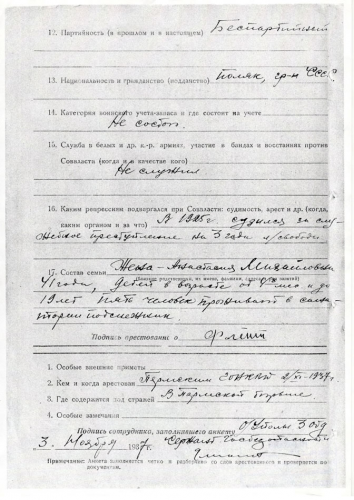 12. Партийность (в прошлом и в настоящем) Беспартийный
13. Национальность и гражданство (подданство) Поляк, гр-н СССР
14. Категория воинского учета-запаса и где состоит на учете
Не состоит.
15. Служба в белых и др. к.-р. армиях, участие в бандах и восстаниях против
Совласти (когда и в качестве кого)
Не служил
16. Каким репрессиям подвергался при Совласти: судимость, арест и др. (когда,
каким органом и за что) В 1925г. судился за слу-
жебное преступление на 3 года л/свободы
17. Состав семьи Жена - Анастасия Михайловна
41 года, детей в возрасте от до
19 лет пять человек проживают в сана-
тории подснежник
Подпись арестованного
1. Особые внешние приметы
2. Кем и когда арестован Пермским 2/XI-1937г.
3. Где содержится под стражей В Пермской тюрьме
4. Особые замечания
Подпись сотрудника, заполнившего анкету
3. Ноября 1937г. Сержант Госбезопасности
Примечание: Анкета заполняется четко и разборчиво со слов арестованного и проверяется по
документам.